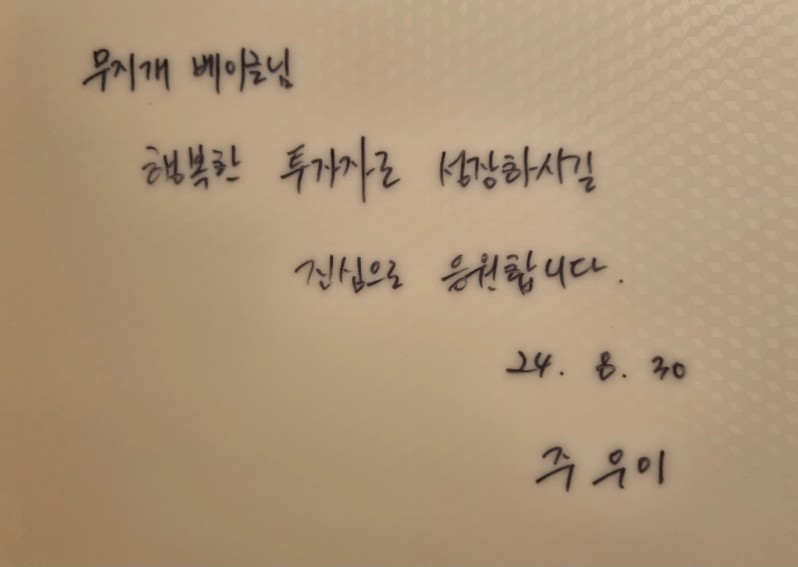 무지개 베이글님
행복한 투자자로 성장하시길
진심으로 응원합니다.
24. 8. 30
주우이